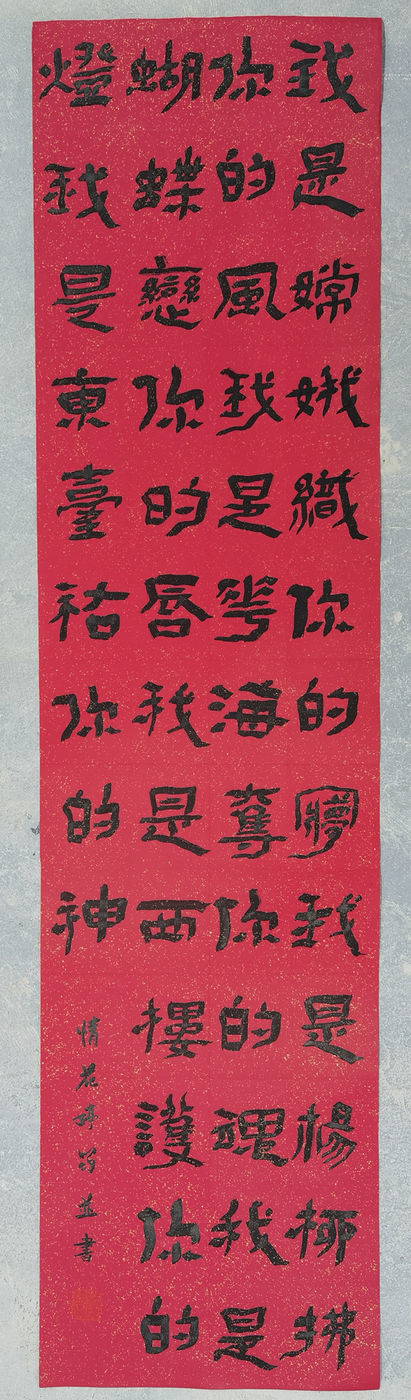 我是嫦娥織你的夢我是楊柳拂
你的風我是華海奪你的魂我是
蝴蝶戀你的唇我是西樓護你的
燈我是東臺祐你的神
情花並書